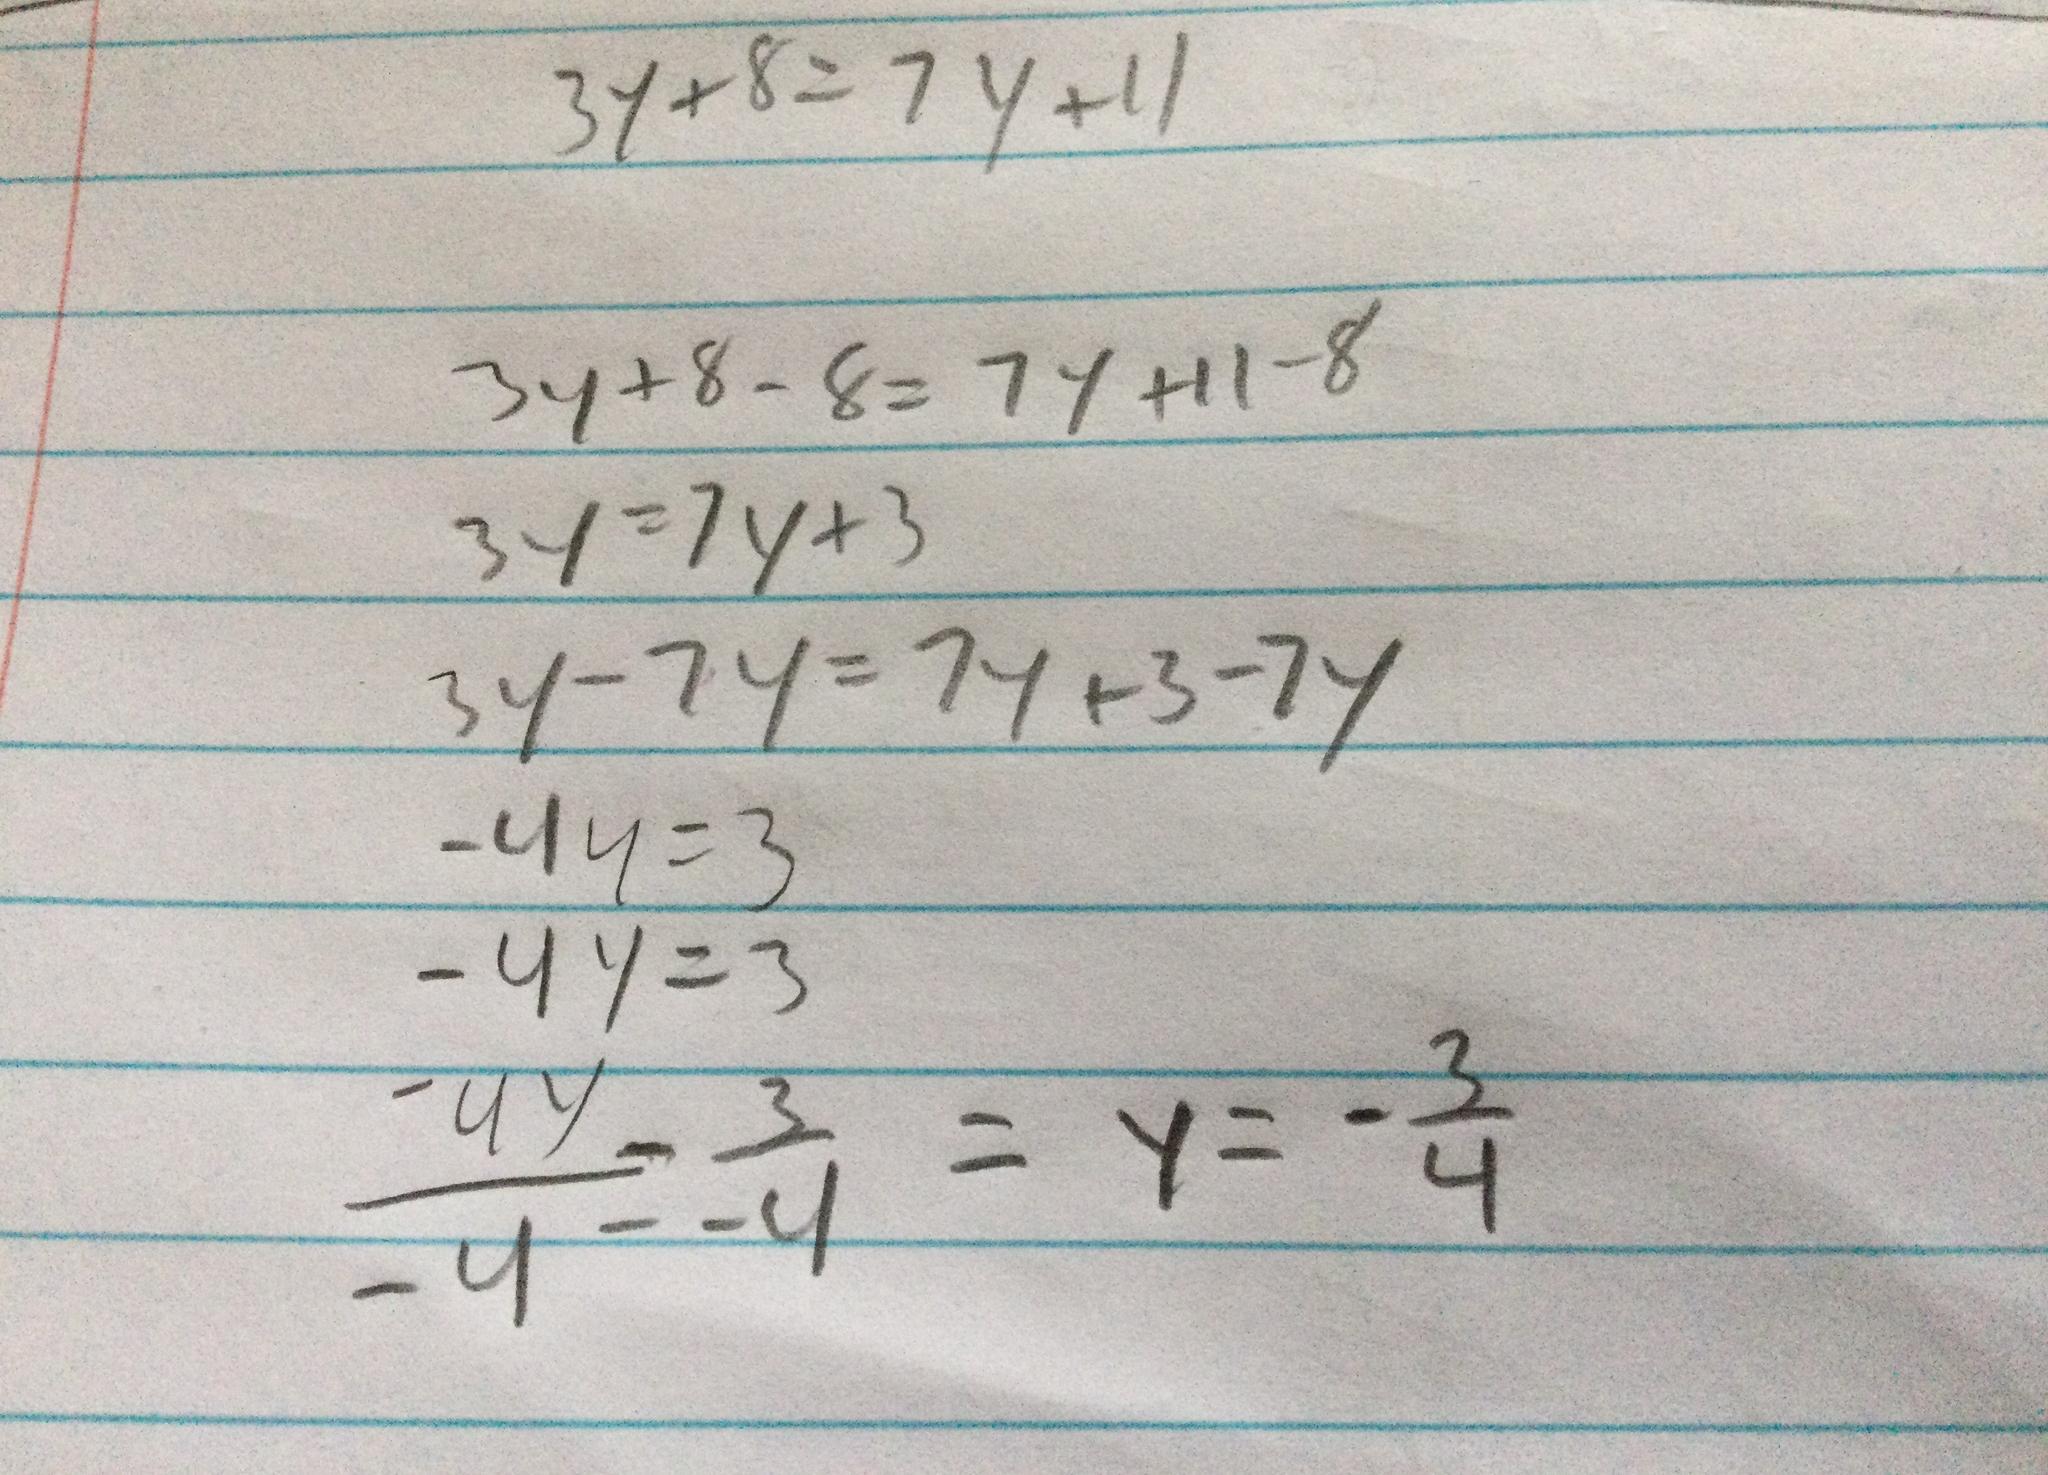 3y+8=7y+11
3y+8-8=7y+11-8
3y=7y+3
3y-7y=7y+3-7y
-4y=3
-4y=3
-4y/-4 = 3/-4 = y = -3/4